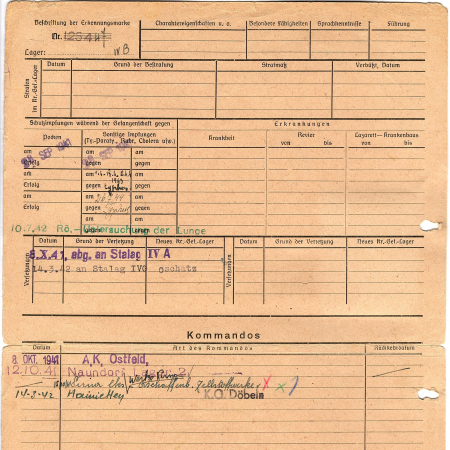 Beschriftung der Erkennungsmarke
Nr. 12544
Lager: IV B
Charaktereigenschaften u. a.
Besondere Fähigkeiten
Sprachkenntnisse
Führung
Strafen im Kr.-Gef.-Lager
Datum
Grund der Bestrafung
Strafmaß
Verbüßt, Datum
Schutzimpfungen während der Gefangenschaft gegen
Erkrankungen
Pocken
Sonstige Impfungen (Ty.-Paraty., Ruhr, Cholera usw.)
Krankheit
Revier
von bis
Lazarett - Krankenhaus
von bis
am
am
am
Erfolg
gegen
gegen
am
am
am
Erfolg
gegen
gegen
am
am
am
Erfolg
gegen
gegen
am
am
gegen
gegen
SEP 1941
SEP 1941
10.7.42 Rö.-Untersuchung der Lunge
Versetzungen
Datum
Grund der Versetzung
Neues Kr.-Gef.-Lager
Versetzungen
Datum
Grund der Versetzung
Neues Kr.-Gef.-Lager
6.X.41, abg. an Stalag IV A
14.3.42 an Stalag IVG Oschatz
Kommandos
Datum
Art des Kommandos
Rückkehrdatum
8. OKT. 1941
A.K. Ostfeld,
12.10.41
Naundorf
Zellstoffwerke,
14-3-42
K.O. Döbeln